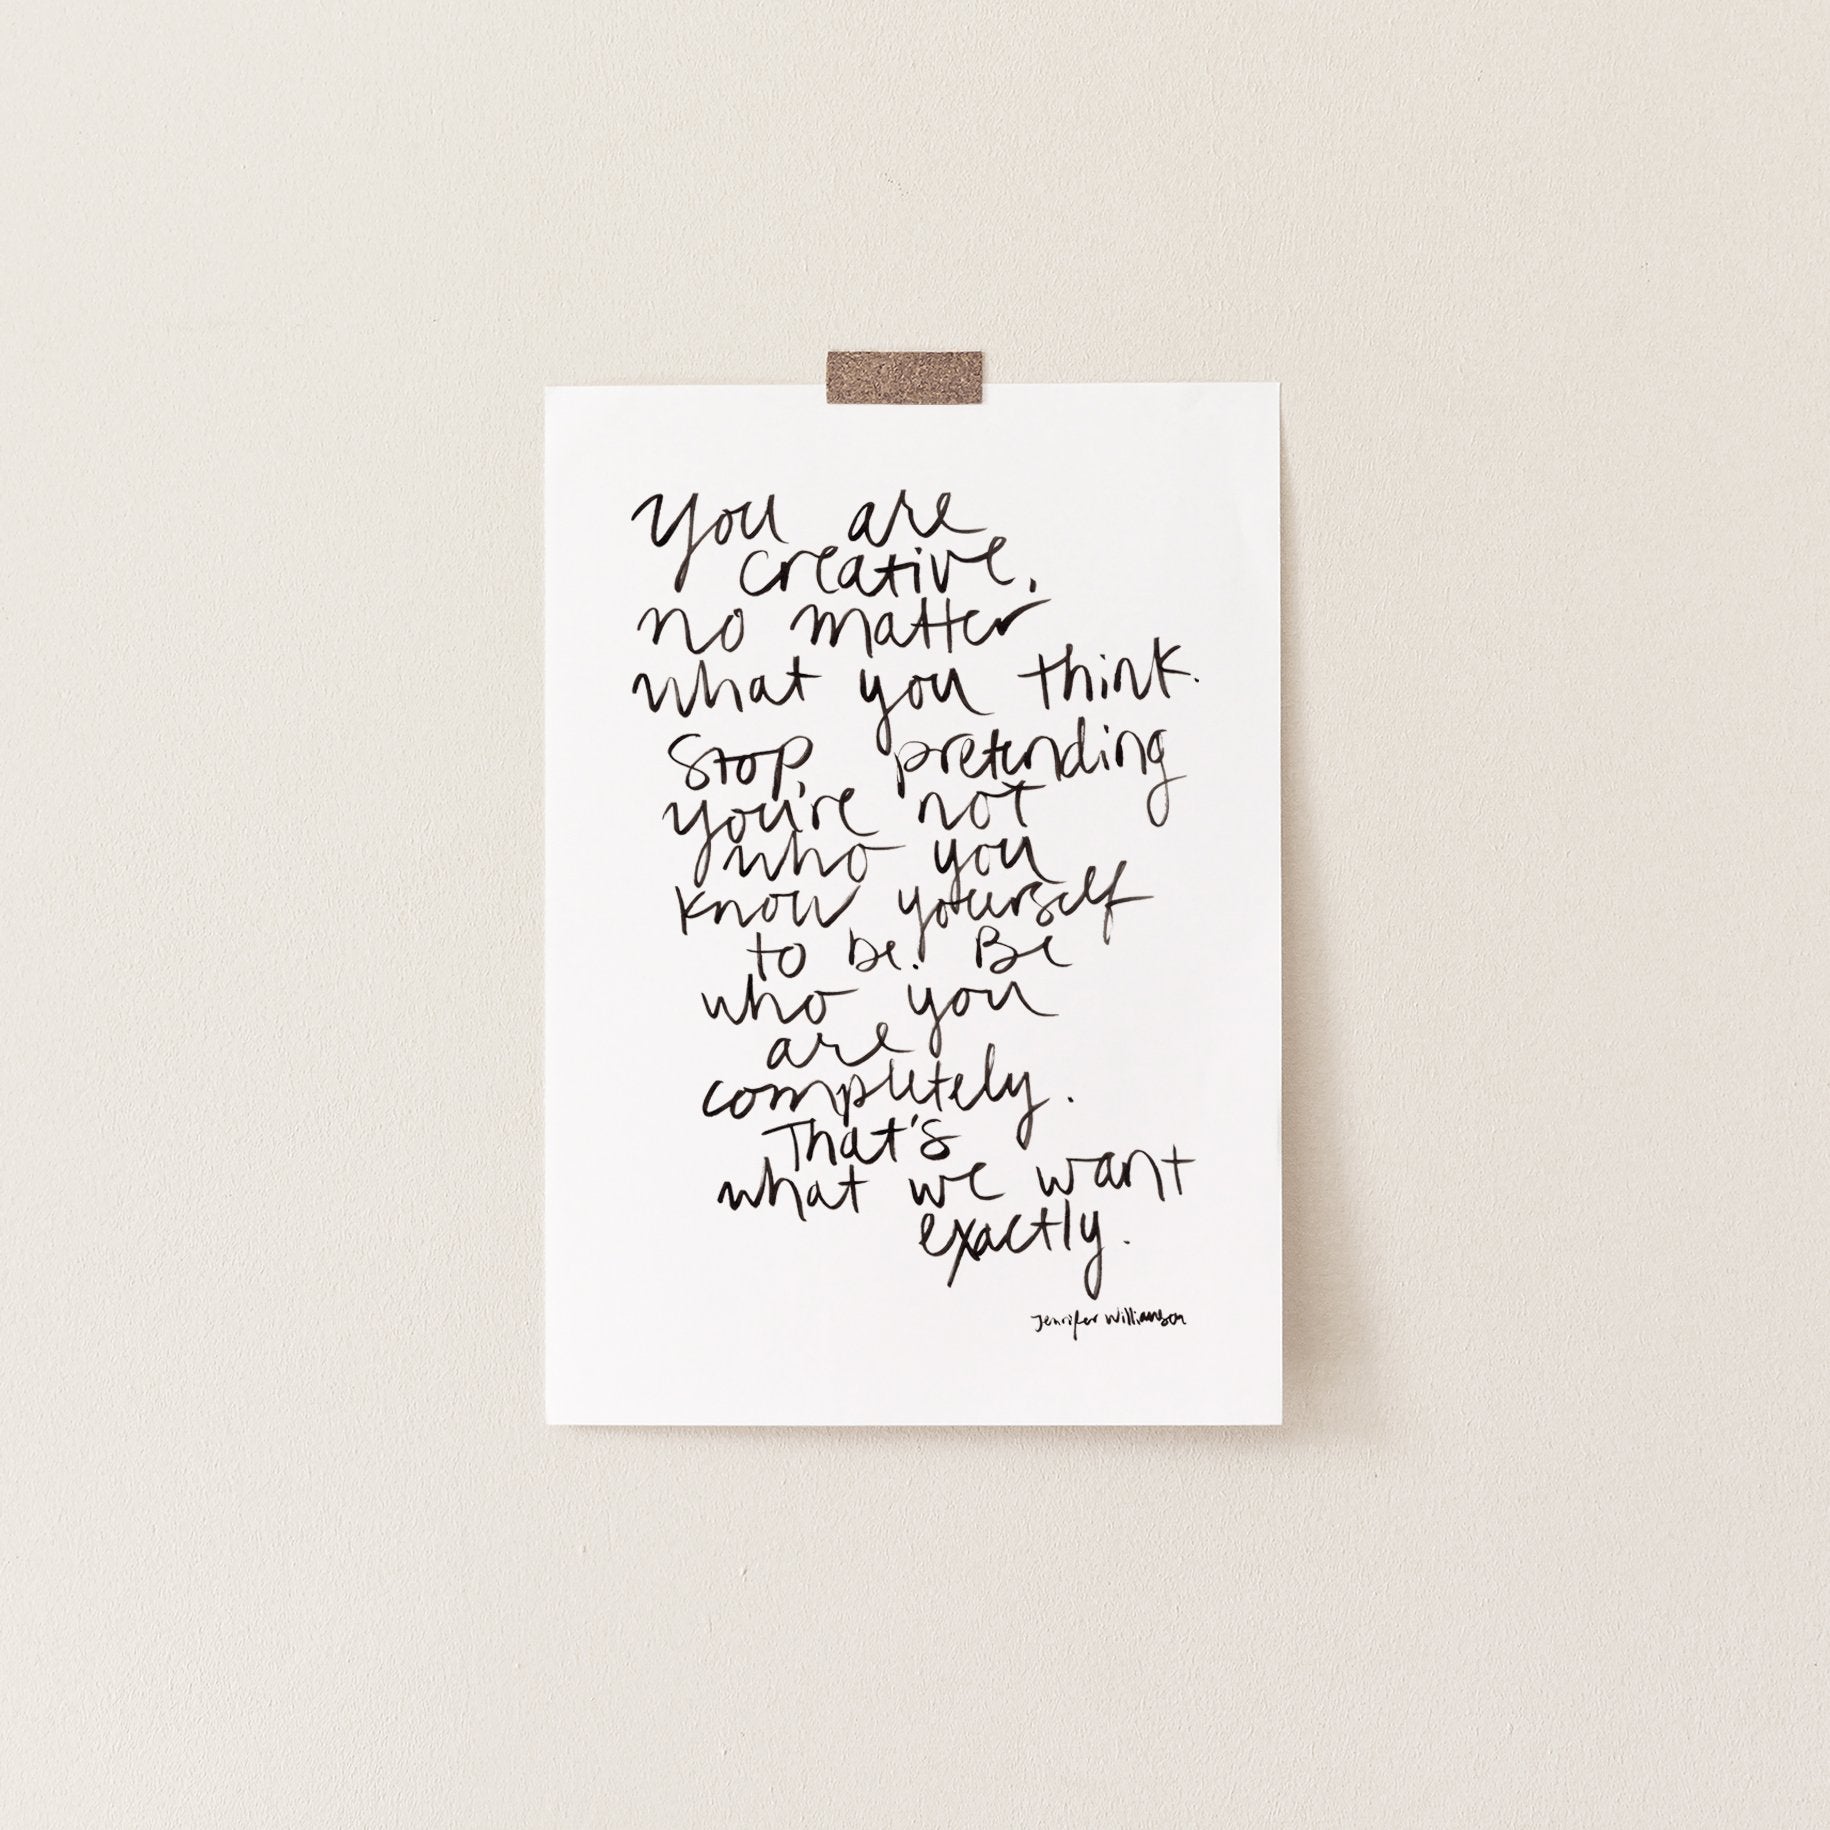 You are
creative,
no matter
what you think.
Stop pretending
you're not
who you
know yourself
to be. Be
who you
are
completely.
That's
what we want
exactly.
Jennifer Williamson